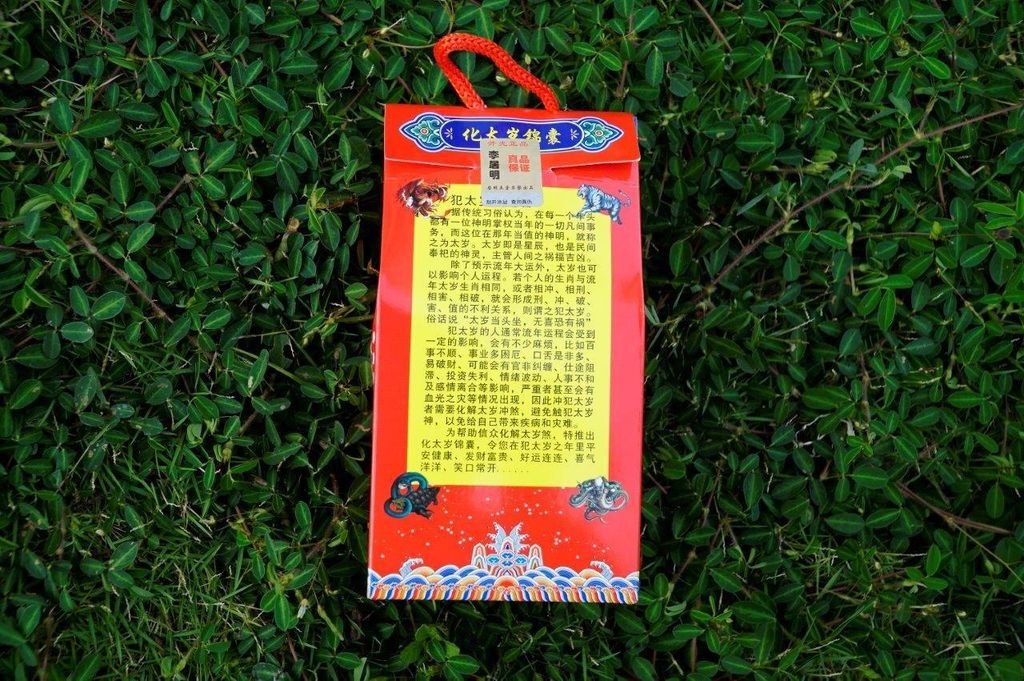 化太岁锦囊
开光正品
李居明
真品
保证
犯太
据传统习俗认为，在每一个年头
都有一位神明掌权当年的一切凡间事
务，而这位在那年当值的神明，就称
之为太岁。太岁即是星辰，也是民间
奉祀的神灵，主管人间之祸福吉凶。
除了预示流年大运外，太岁也可
以影响个人运程。若个人的生肖与流
年太岁生肖相同，或者相冲、相刑、
相害、相破，就会形成刑、冲、破、
害、值的不利关系，则谓之犯太岁。
俗话说“太岁当头坐，无喜恐有祸”
犯太岁的人通常流年运程会受到
一定的影响，会有不少麻烦，比如百
事不顺、事业多困厄、口舌是非多、
易破财、可能会有官非纠缠、仕途阻
滞、投资失利、情绪波动、人事不和
及感情离合等影响，严重者甚至会有
血光之灾等情况出现，因此冲犯太岁
者需要化解太岁冲煞，避免触犯太岁
神，以免给自己带来疾病和灾难。
为帮助信众化解太岁煞，特推出
化太岁锦囊，令您在犯太岁之年里平
安健康、发财富贵、好运连连、喜气
洋洋、笑口常开......